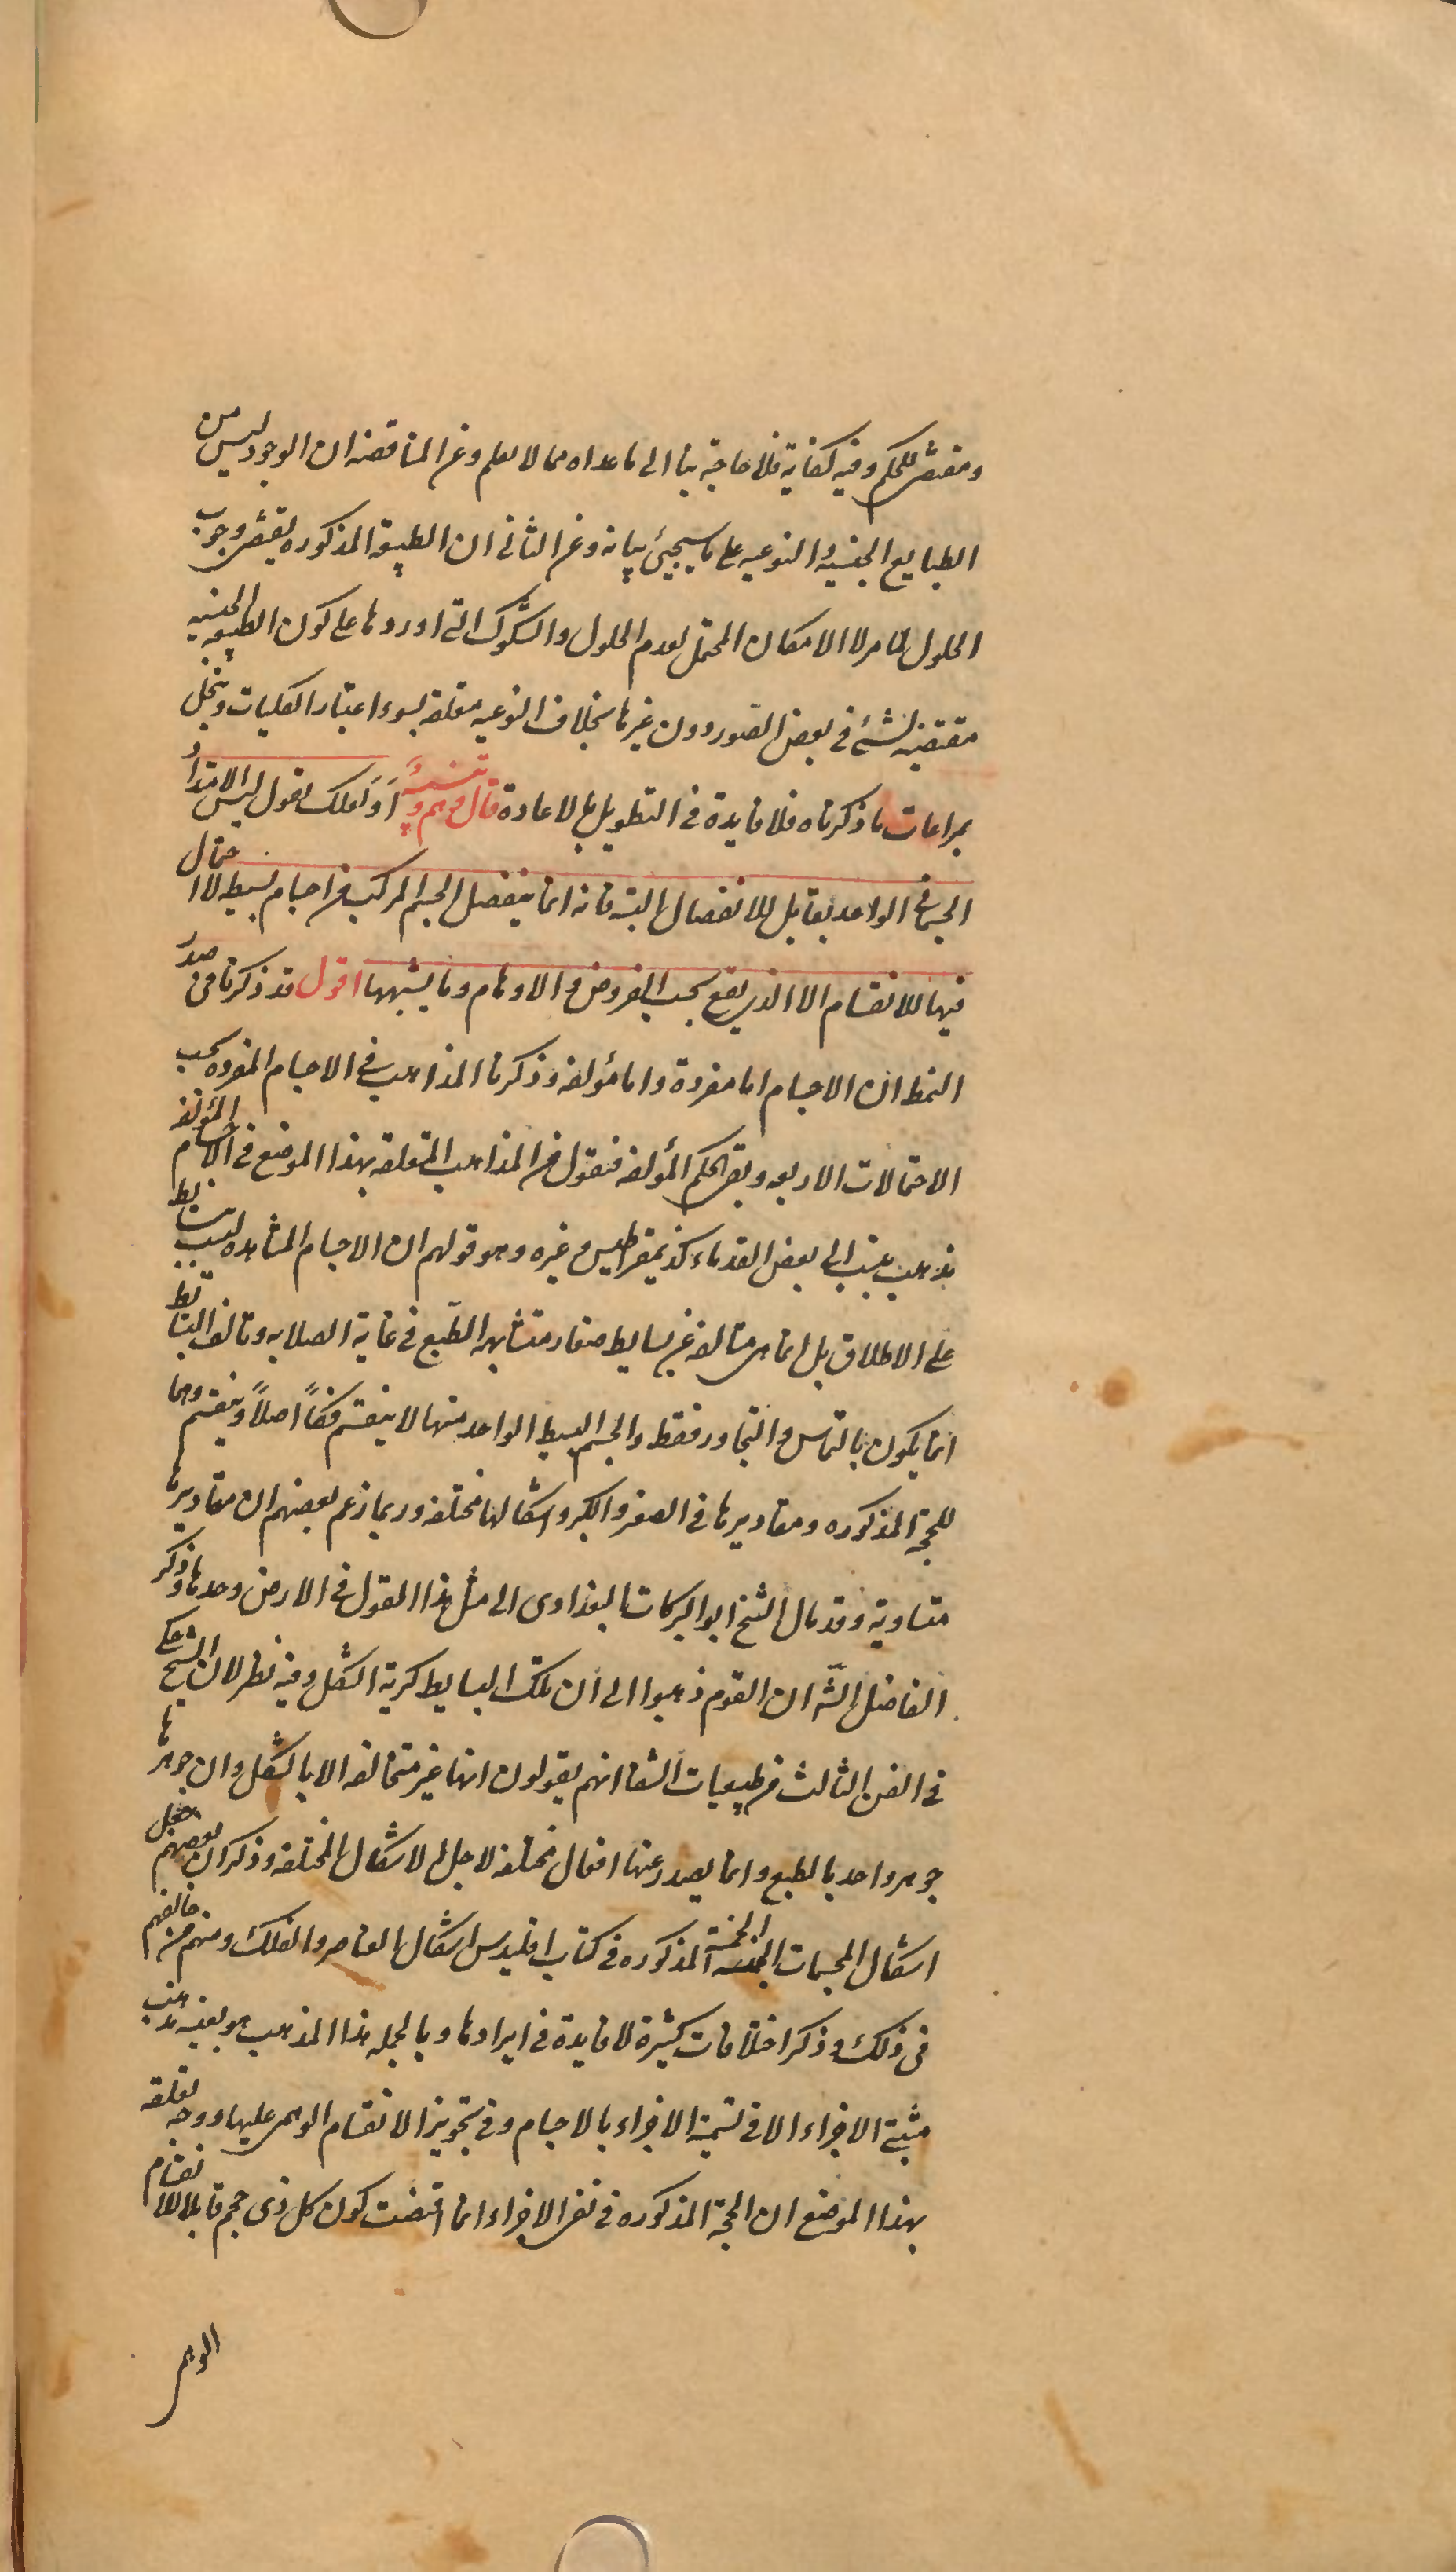 ومقتض للحكم وفيه كفاية فلا حاجة بنا الى ما عداه مما لا يعلم وعن المناقضه ان الوجود ليس من
الطبايع الجنسيه والنوعيه على ما سيجيئ بيانه وعن الثانى ان الطبيعة المذكوره يقتضى وجوب
الحلول كما مر لا الامكان المحتمل لعدم الحلول والشكوك التى اوردوها على كون الطبيعه الجنسيه
مقتضيه لشئ فى بعض الصور دون غيرها بخلاف النوعيه متعلقه بسوء اعتبار الكليات وينحل
بمراعات ما ذكرناه فلا فايدة فى التطويل بالاعادة قال وهم وتنبيهٌ اَوَ لعلك تقول ليس الامتداد
الجسمانى الواحد بقابل للانفصال البته فانه انما ينفصل الجسم المركب من اجسام بسيطه لا احتمال
فيها للانقسام الا الذى يقع بحسب الفروض والاوهام وما يشبهها اقول قد ذكرنا فى صدر
النمط ان الاجسام اما مفردة واما مؤلفه وذكرنا المذاهب فى الاجسام المفرده بحسب
الاحتمالات الاربعه وبقى حكم المؤلفه فنقول من المذاهب المتعلقه بهذا الموضع فى الاجسام المؤلفه
مذهب ينسب الى بعض القدماء كذيمقراطيس وغيره وهو قولهم ان الاجسام المشاهده ليست بسايط
على الاطلاق بل انما هى متالفه عن بسايط صغار متشابهه الطبع فى غاية الصلابه وتالف البسايط
انما يكون بالتماس والتجاور فقط والجسم البسيط الواحد منها لا ينقسم فكاً اصلاً وينقسم وهما
للحجة المذكوره ومقاديرها فى الصغر والكبر واشكالها مختلفه وربما زعم بعضهم ان مقاديرها
متساوية وقد مال الشيخ ابو البركات البغدادى الى مثل هذا القول فى الارض وحدها وذكر
الفاضل الشه ان القوم ذهبوا الى ان تلك البسايط كرية الشكل وفيه نظر لان الشيخ حكى
فى الفن الثالث من طبيعيات الشفا انهم يقولون انها غير متخالفه الا بالشكل وان جوهرها
جوهر واحد بالطبع وانما يصدر عنها افعال مختلفه لاجل الاشكال المختلفه وذكر ان بعضهم جعل
اشكال المجسمات الخمسة المذكوره فى كتاب اقليدس اشكال العناصر والفلك ومنهم من خالفهم
فى ذلك وذكر اختلافات كثيرة لا فايدة فى ايرادها وبالجمله هذا المذهب هو بعينه مذهب
مثبتى الاجزاء الا فى تسمية الاجزاء بالاجسام وفى تجويز الانقسام الوهمى عليها ووجه تعلقه
بهذا الموضع ان الحجة المذكوره فى نفى الاجزاء انما اقتضت كون كل ذى حجم قابلا للانقسام
الوهمى